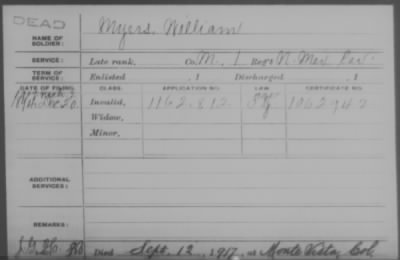 DEAD
NAME OF SOLDIER: Myers, William
SERVICE: Late rank, Co. M, 1 Reg't N. Mex. Cav.
TERM OF SERVICE: Enlisted , 1 Discharged , 1
DATE OF FILING. CLASS. APPLICATION NO. LAW CERTIFICATE NO.
Invalid, 1162.812 1062947
Widow,
Minor,
ADDITIONAL SERVICES:
REMARKS:
Died Sept. 12, 1917, at Monte Vista, Col.